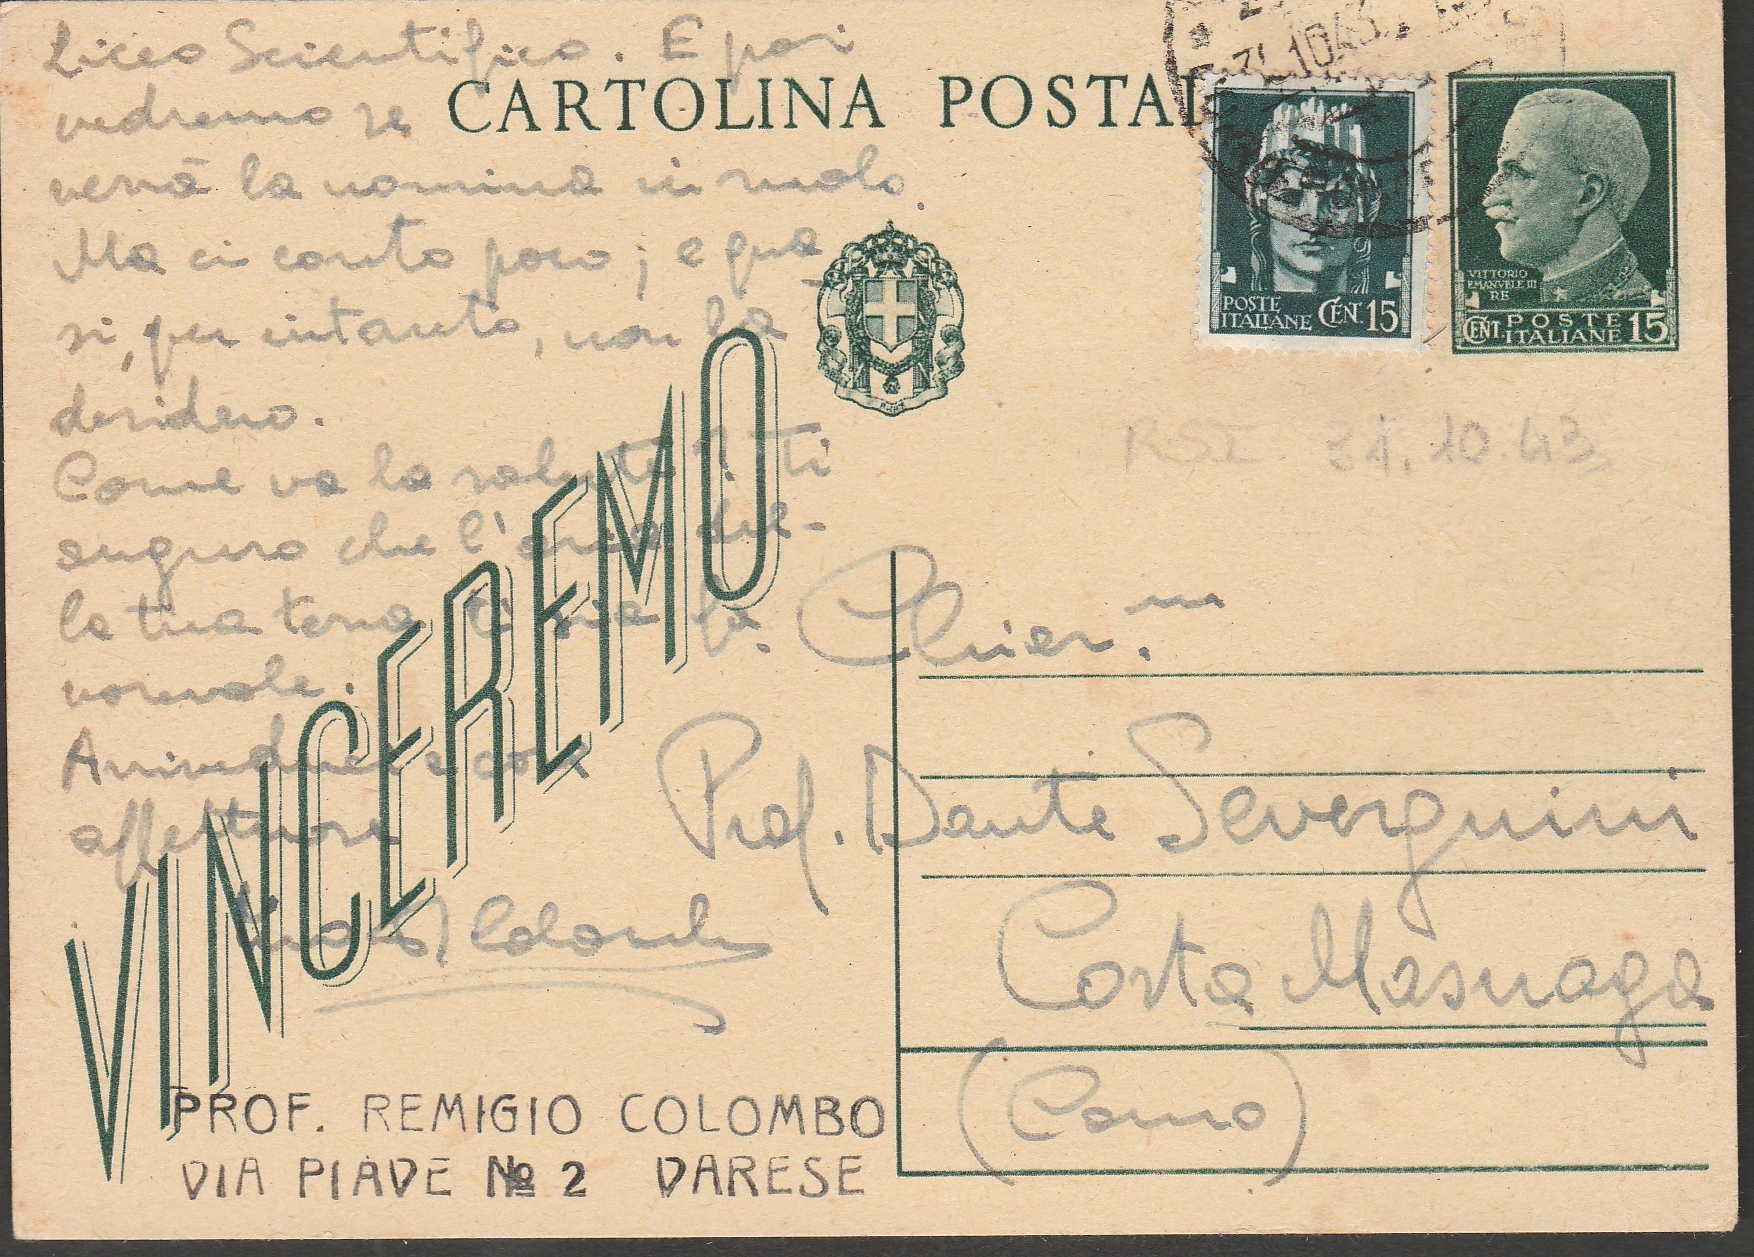 Liceo Scientifico. E poi
vedremo se
verrà la nomina in ruolo.
Ma ci conto poco; e qua-
si, per intanto, non la
desidero.
Come va la salute? Ti
auguro che l'aria del-
la tua terra ti sia fa-
vorevole.
Arrivederci e cose
affettuose
Colombo
CARTOLINA POSTALE
31.10.43
POSTE ITALIANE CENT. 15
VITTORIO
EMANVELE III
RE
CENT POSTE ITALIANE 15
RSI 31.10.43
VINCEREMO
Chiar.mo
Prof. Dante Severgnini
Costa Masnaga
(Como)
PROF. REMIGIO COLOMBO
VIA PIAVE No 2 VARESE